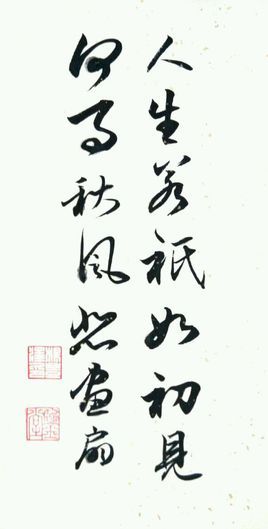 人生若祇如初見
何事秋風悲画扇